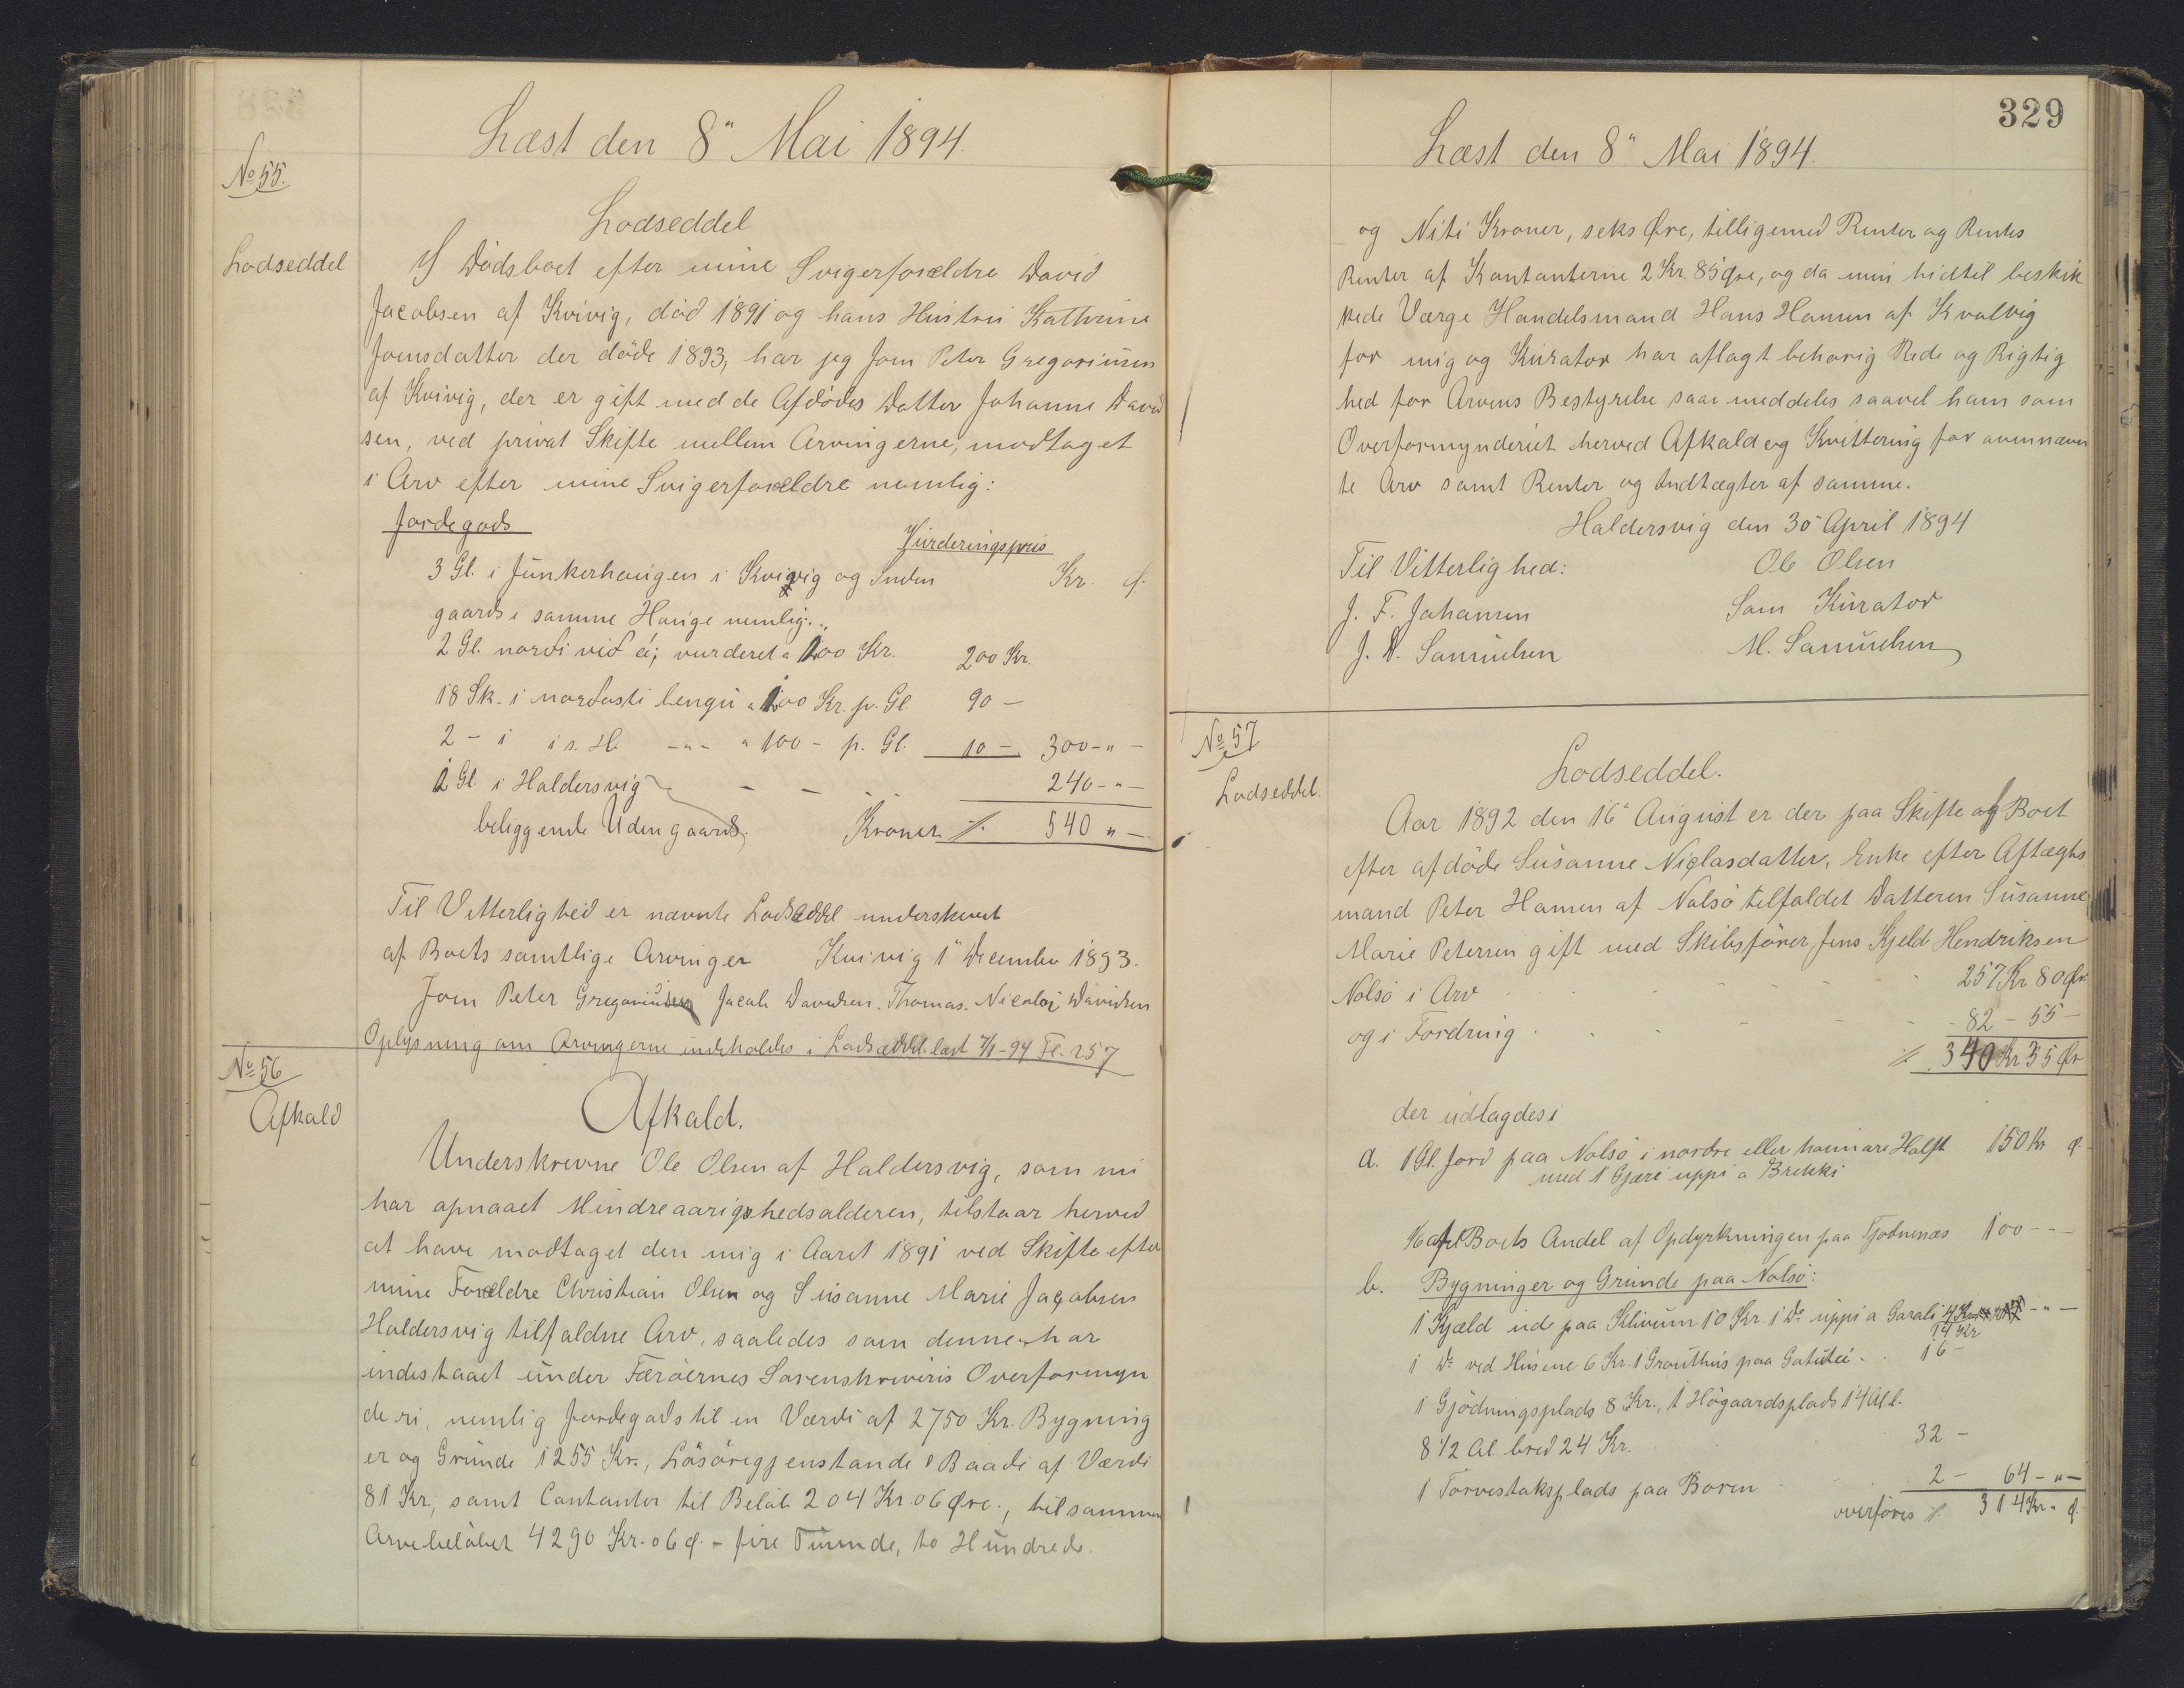 Læst den 8" Mai 1894.
No 55.
Lodseddel
Lodseddel
I Dödsboet efter mine Svigerforældre David
Jacobsen af Kvivig, död 1891 og hans Hustru Kathrine
Joensdatter der döde 1893, har jeg Joen Peter Gregoriusen
af Kvivig, der er gift med de Afdödes Datter Johanne David
sen, ved privat Skifte mellem Arvingerne, modtaget
i Arv efter mine Svigerforældre nemlig:
Jordegods
Vurderingspris
3 Gl. i Junkerhaugen i Kvivig og Inden Kr. Ø.
gaards i samme Hauge nemlig:
2 Gl. nordi við á; vurderet a 100 Kr. 200 Kr.
18 Sk. i nordasti bengu a 100 Kr. p. Gl. 90 —
2 - i i s. H. -"- a 100 - p. Gl. 10 — 300 - " -
1 Gl. i Haldersvig - - - 240 - " -
beliggende Udengaards. Kroner ٪ 540 " -
Til Vitterlighed er nævnte Lodseddel underskrevet
af Boets samtlige Arvinger Kvivig 1" December 1893.
Joen Peter Gregoriusen Jacob Davidsen. Thomas. Nicolai Davidsen
Oplysning om Arvingerne indeholdes i Lodseddel læst 7/1-94 Fl. 257
No 56
Afkald
Afkald.
Underskrevne Ole Olsen af Haldersvig, som nu
har opnaaet Mindreaarigshedsalderen, tilstaar herved
at have modtaget den mig i Aaret 1891 ved Skifte efter
mine Forældre Christian Olsen og Susanne Marie Jacobsen
Haldersvig tilfaldne Arv, saaledes som denne har
indestaaet under Færöernes Sorenskriveris Overformyn
deri, nemlig Jordegods til en Værdi af 2750 Kr. Bygning
er og Grunde 1255 Kr., Lösöregjenstande i Baade af Værdi
81 Kr., samt Contanter til Belöb 204 Kr. 06 Øre., tilsammen
Arvebelöbet 4290 Kr. 06 Ø. - fire Tusunde, to Hundrede
329
Læst den 8" Mai 1894.
og Niti Kroner, seks Øre, tilligemed Renter og Rentes
Renter af Kontanterne 2 Kr. 85 Øre, og da min hidtil beskik
kede Værge Handelsmand Hans Hansen af Kvalvig
for mig og Kurator har aflagt behörig Rede og Rigtig
hed for Arvens Bestyrelse saa meddeles saavel ham som
Overformynderiet herved Afkald og Kvittering for ovennævn
te Arv samt Renter og Indtægter af samme.
Haldersvig den 30" April 1894
Til Vitterlighed: Ole Olsen
J. F. Johansen Som Kurator
J. D. Samuelsen M. Samuelsen
No 57
Lodseddel.
Lodseddel.
Aar 1892 den 16" August er der paa Skifte af Boet
efter afdöde Susanne Niclasdatter, Enke efter Aftægts
mand Peter Hansen af Nolsö tilfaldet Datteren Susanne
Marie Petersen gift med Skibsförer Jens Kjeld Hendriksen
Nolsö i Arv 257 Kr 80 Ør
og i Fordring 82 - 55 -
٪ 340 Kr 35 Ør
der udlagdes i
a. 1 Gl. Jord paa Nolsö i nordre eller haimare Halft 150 Kr Ø.
med 1 Gjæri uppi a Brekki
1/6 af Boets Andel af Opdyrkningen paa Tjodnenæs 100 - -
b. Bygninger og Grunde paa Nolsö:
1 Kjæld ude paa Klivum 10 Kr. 1 Do uppi a Garali 4 Kr - " -
14 Kr
1 Do ved Husene 6 Kr. 1 Grouthus paa Gatutei 16 -
1 Gjödningsplads 8 Kr., 1 Högaardsplads 14 Al l.
8 1/2 Al. bred 24 Kr. 32 -
1 Torvestaksplads paa Boren 2 - 64 - " -
overföres ٪ 314 Kr. " Ø.